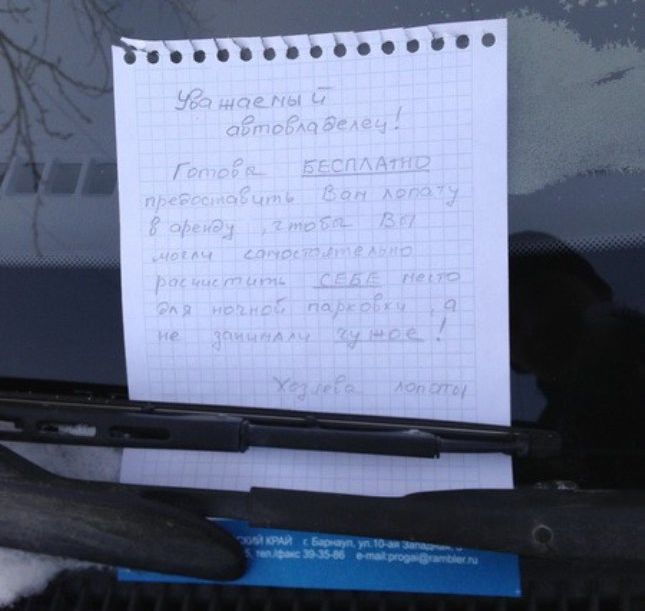 Уважаемый
автовладелец!
Готовы БЕСПЛАТНО
предоставить Вам лопату
в аренду, чтобы Вы
могли самостоятельно
расчистить СЕБЕ место
для ночной парковки, а
не занимали чужое!
Хозяева лопаты
СКИЙ КРАЙ г. Барнаул, ул.10-ая Западная,
5, тел./факс 39-35-86 e-mail:progai@rambler.ru